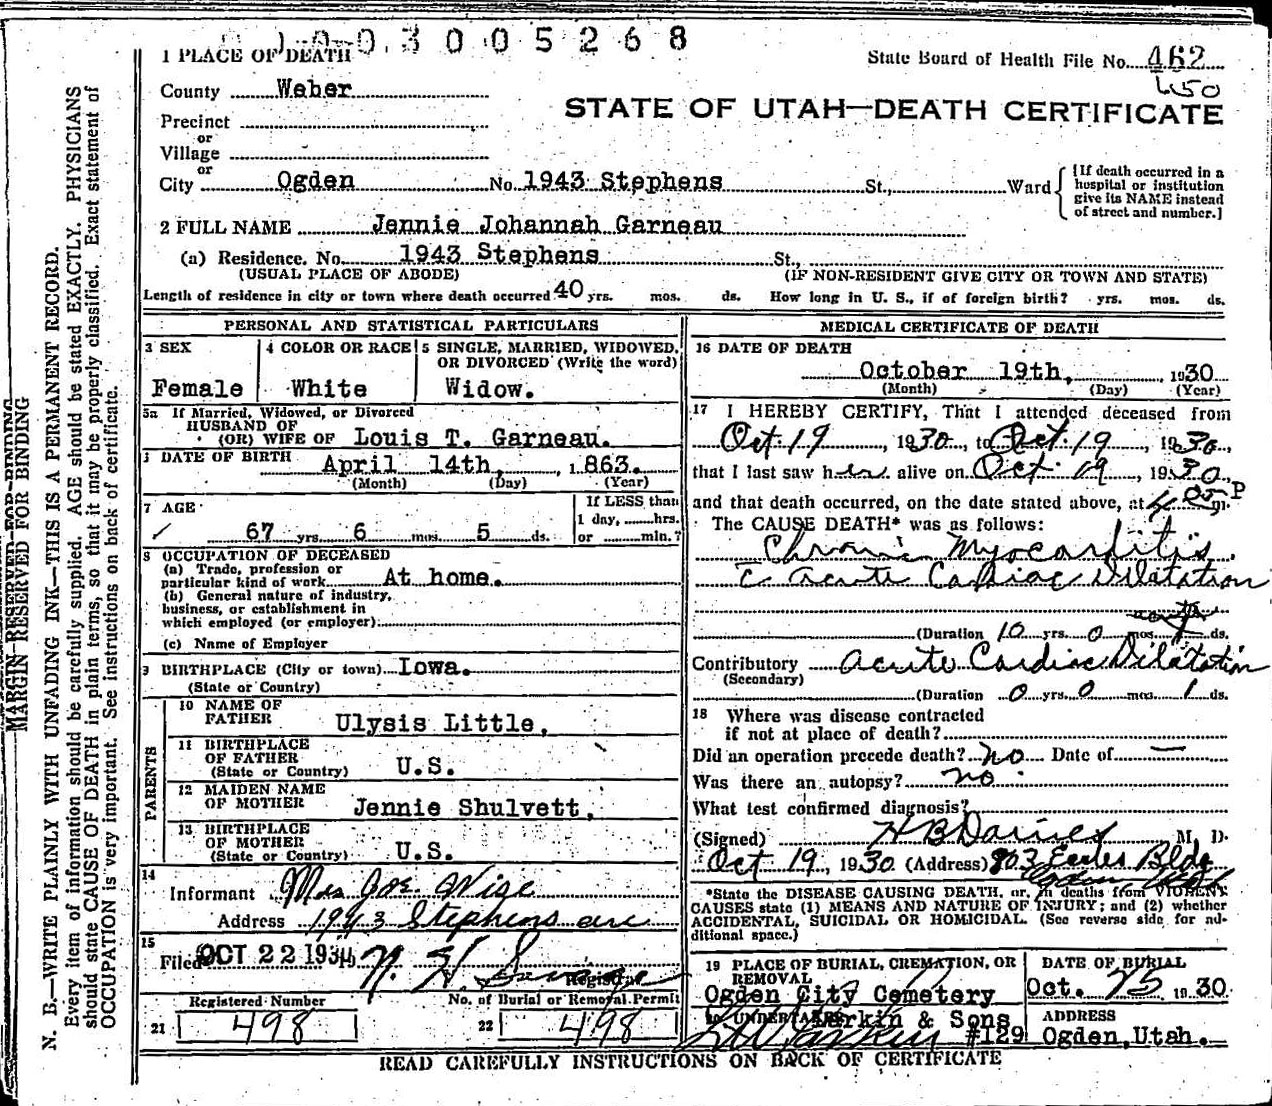 0 0 3 0 0 5 2 6 8
1 PLACE OF DEATH
State Board of Health File No. 462
650
County Weber
STATE OF UTAH—DEATH CERTIFICATE
Precinct
or
Village
or
City Ogden No. 1943 Stephens St., Ward
[If death occurred in a
hospital or institution
give its NAME instead
of street and number.]
2 FULL NAME Jennie Johannah Garneau
(a) Residence. No. 1943 Stephens St.,
(USUAL PLACE OF ABODE) (IF NON-RESIDENT GIVE CITY OR TOWN AND STATE)
Length of residence in city or town where death occurred 40 yrs. mos. ds. How long in U. S., if of foreign birth? yrs. mos. ds.
PERSONAL AND STATISTICAL PARTICULARS
3 SEX
Female
4 COLOR OR RACE
White
5 SINGLE, MARRIED, WIDOWED,
OR DIVORCED (Write the word)
Widow.
5a If Married, Widowed, or Divorced
HUSBAND OF
(OR) WIFE OF Louis T. Garneau.
DATE OF BIRTH April 14th, 1863.
(Month) (Day) (Year)
7 AGE
67 yrs. 6 mos. 5 ds.
If LESS than
1 day, hrs.
or min.?
8 OCCUPATION OF DECEASED
(a) Trade, profession or
particular kind of work At home.
(b) General nature of industry,
business, or establishment in
which employed (or employer)
(c) Name of Employer
9 BIRTHPLACE (City or town) Iowa.
(State or Country)
PARENTS
10 NAME OF
FATHER Ulysis Little,
11 BIRTHPLACE
OF FATHER
(State or Country) U.S.
12 MAIDEN NAME
OF MOTHER Jennie Shulvett,
13 BIRTHPLACE
OF MOTHER
(State or Country) U.S.
14
Informant Mrs Joe. Wise
Address 1943 Stephens ave
15
Filed OCT 22 1930
Registrar
Registered Number
21 498
No. of Burial or Removal Permit
22 498
MEDICAL CERTIFICATE OF DEATH
16 DATE OF DEATH
October 19th, 1930
(Month) (Day) (Year)
17 I HEREBY CERTIFY, That I attended deceased from
Oct. 19, 1930, to Oct. 19, 1930
that I last saw her alive on Oct. 19, 1930,
and that death occurred, on the date stated above, at 4 05 P m.
The CAUSE DEATH* was as follows:
Chronic Myocarditis.
c Acute Cardiac Dilatation
(Duration 10 yrs. 0 mos. ds.
Contributory Acute Cardiac Dilatation
(Secondary)
(Duration 0 yrs. 0 mos. 1 ds.
18 Where was disease contracted
if not at place of death?
Did an operation precede death? no Date of —
Was there an autopsy? no
What test confirmed diagnosis?
(Signed) M. D.
Oct 19, 1930 (Address) 803 Eccles Bldg
Ogden Utah
*State the DISEASE CAUSING DEATH, or, in deaths from VIOLENT
CAUSES state (1) MEANS AND NATURE OF INJURY; and (2) whether
ACCIDENTAL, SUICIDAL OR HOMICIDAL. (See reverse side for ad-
ditional space.)
19 PLACE OF BURIAL, CREMATION, OR
REMOVAL
Ogden City Cemetery
DATE OF BURIAL
Oct. 25 1930
20 UNDERTAKER Larkin & Sons
#129
ADDRESS
Ogden, Utah.
READ CAREFULLY INSTRUCTIONS ON BACK OF CERTIFICATE
MARGIN RESERVED FOR BINDING
MARGIN RESERVED FOR BINDING
N. B.—WRITE PLAINLY WITH UNFADING INK—THIS IS A PERMANENT RECORD.
Every item of information should be carefully supplied. AGE should be stated EXACTLY. PHYSICIANS
should state CAUSE OF DEATH in plain terms, so that it may be properly classified. Exact statement of
OCCUPATION is very important. See instructions on back of certificate.